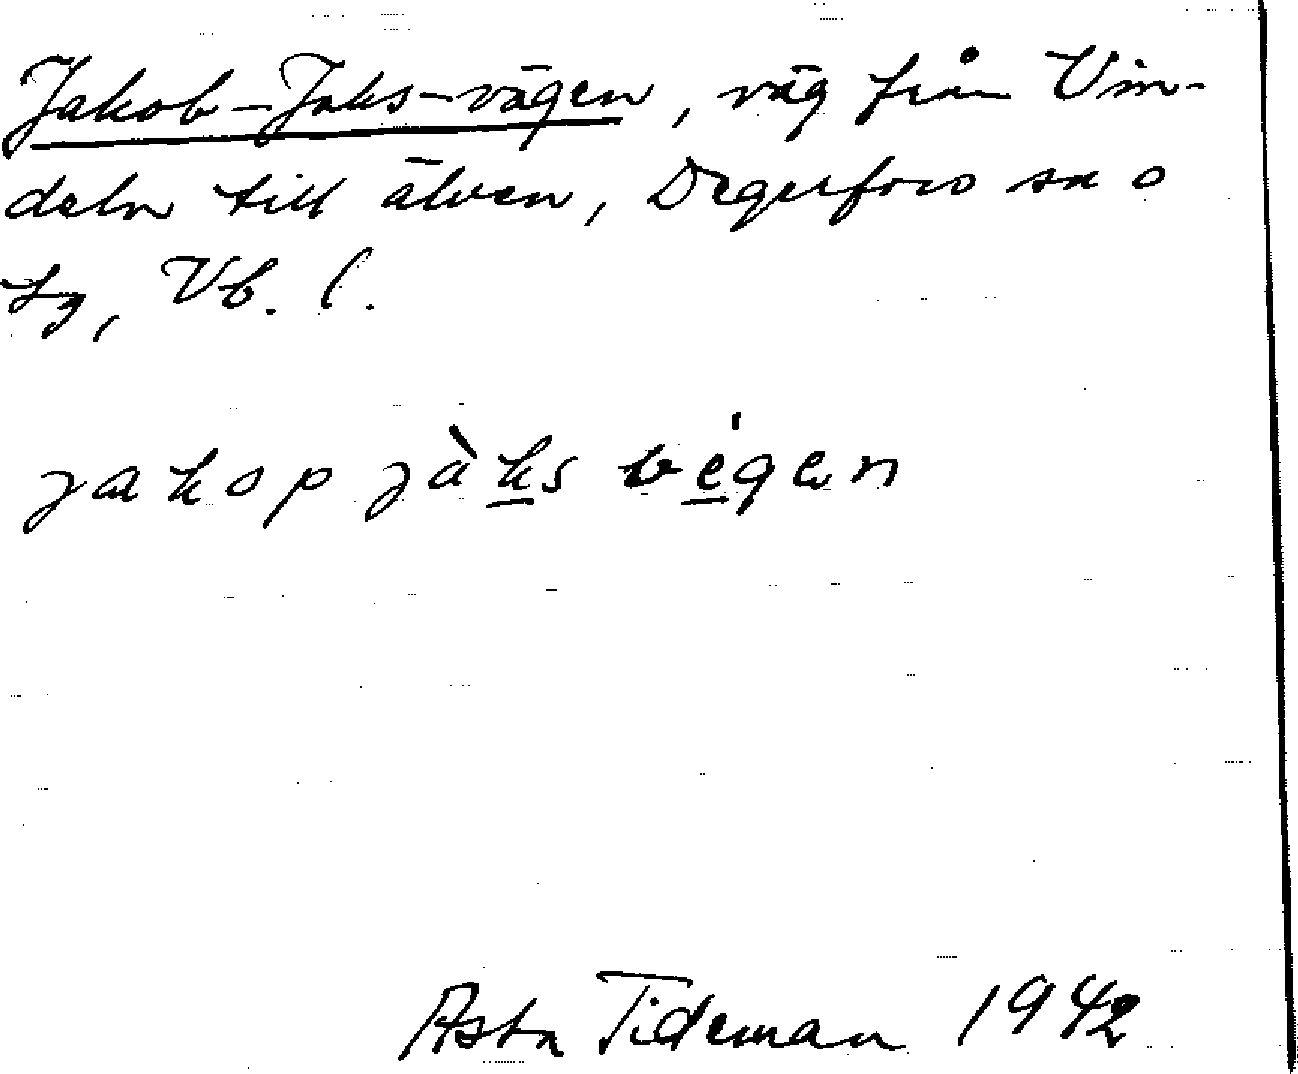 Jakob-Jaks-vägen, väg från Vin-
deln till älven, Degerfors sn o
tg, Vb. l.
jakop jàks végen
Asta Tideman 1942